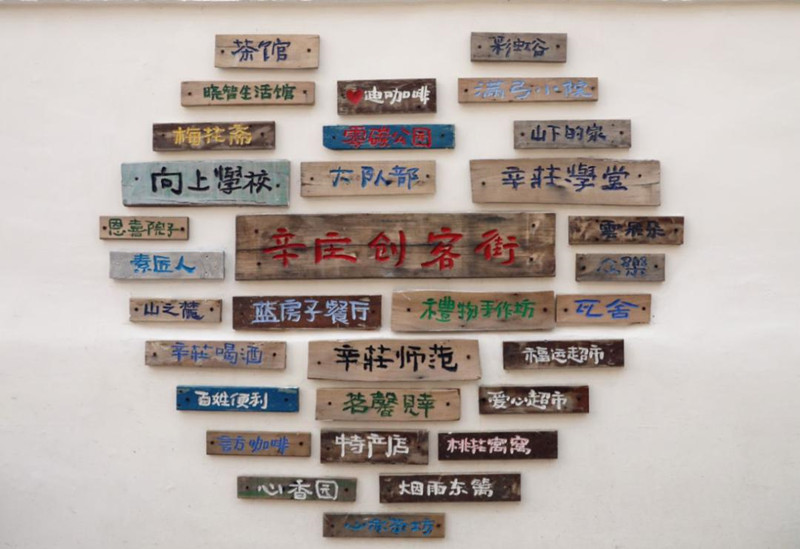 茶馆
彩虹谷
晓智生活馆
迪咖啡
满弓小院
梅花斋
零碳公园
山下的家
向上學校
大队部
辛莊學堂
恩喜院子
辛庄创客街
素匠人
山之麓
蓝房子餐厅
禮物手作坊
瓦舍
辛莊喝酒
辛莊师范
福远超市
百姓便利
茗馨見幸
爱心超市
言方咖啡
特产店
桃花窝窝
心香园
烟雨东篱